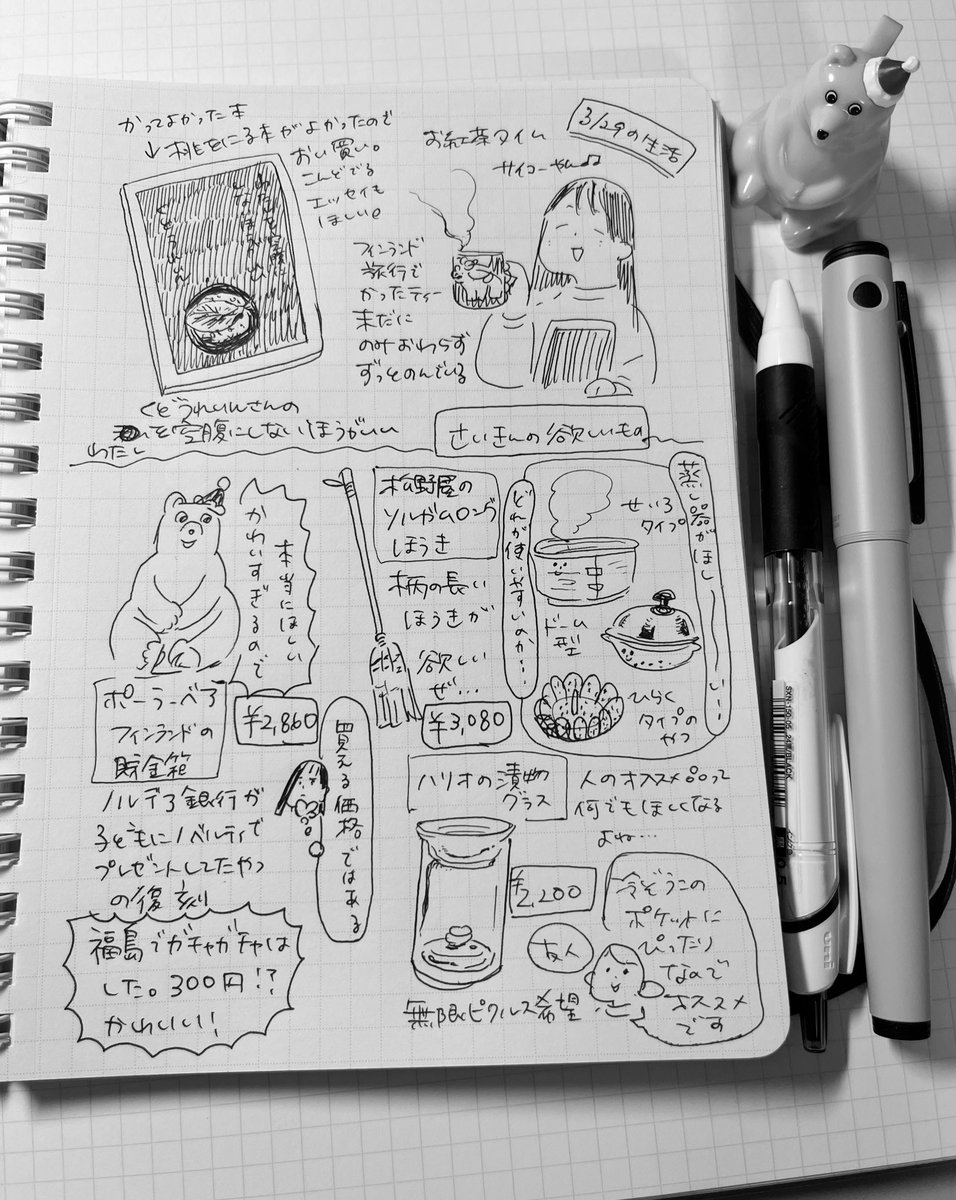 3/29の生活
かってよかった本
↓桃を煮る本がよかったので
おい買い。
こんどでる
エッセイも
ほしい。
くどうれいんさんの
わたしを空腹にしないほうがいい
お紅茶タイム
サイコーやん♫
フィンランド
旅行で
かったティー
未だに
のみおわらず
ずっとのんでいる
さいきんの欲しいもの
本当にほしい
かわいすぎるので
ポーラーベア
フィンランドの
貯金箱
¥2,860
ノルデア銀行が
子どもにノベルティで
プレゼントしてたやつ
の復刻
福島でガチャガチャは
した。300円!?
かわいい!
買える価格ではある
松野屋の
ソルガムロング
ほうき
柄の長い
ほうきが
欲しい
ぜ…
¥3,080
蒸し器がほしーい…
どれが使いやすいのか…
せいろ
タイプ
ドーム
型
ひらく
タイプの
やつ
ハリオの漬物
グラス
¥2,200
人のオススメ品って
何でもほしくなる
よね…
友人
冷ぞうこの
ポケットに
ぴったり
なので
オススメ
です
無限ピクルス希望
uni